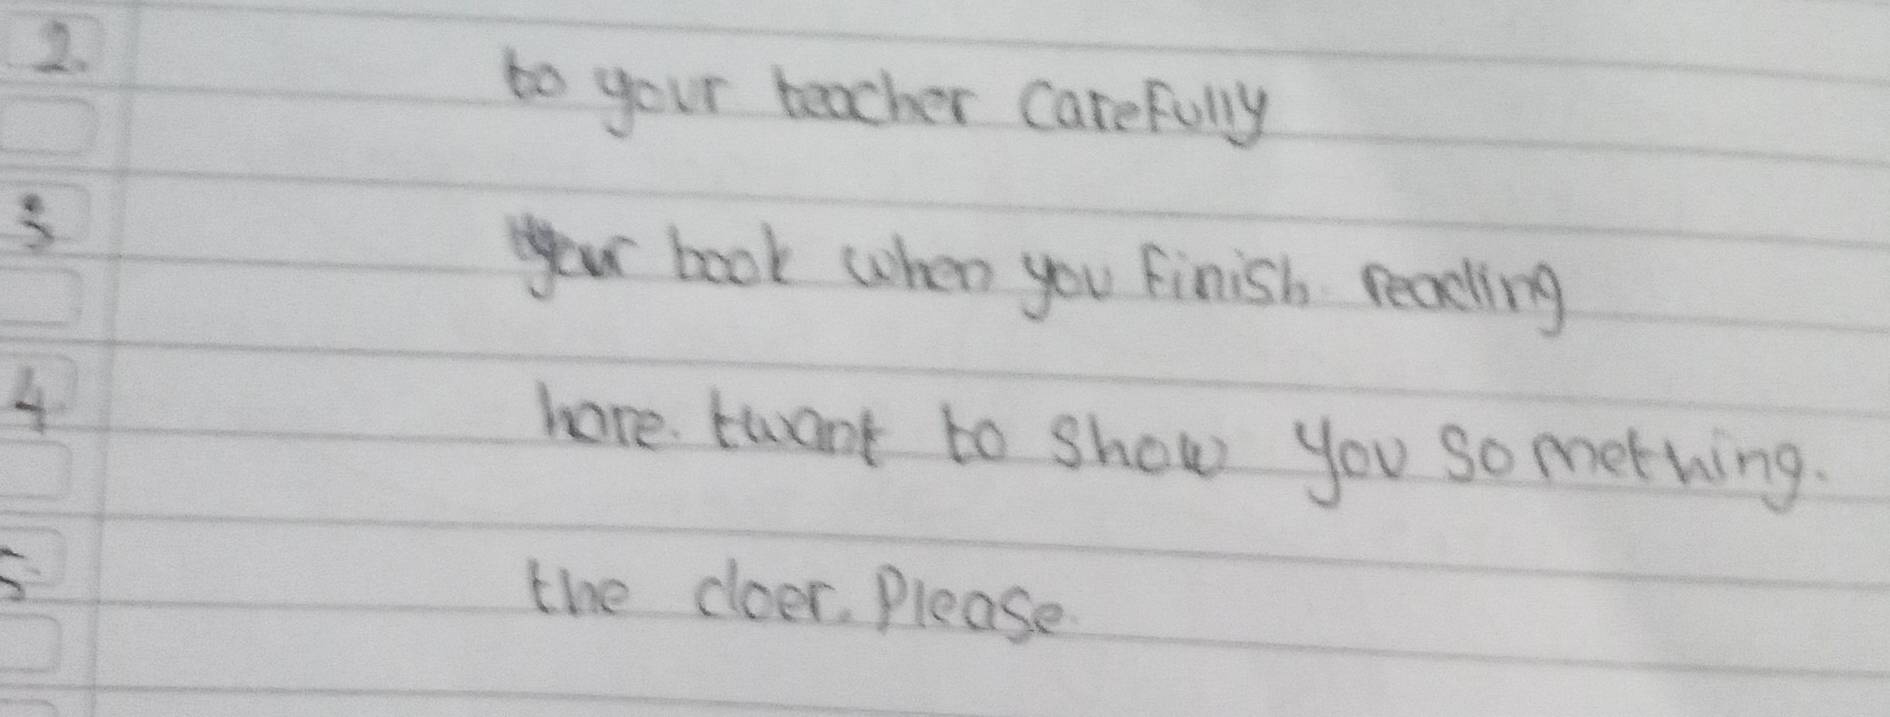 2. to your teacher carefully
3 your book when you finish reading
4. here. I want to show you something.
5. the doer. Please.